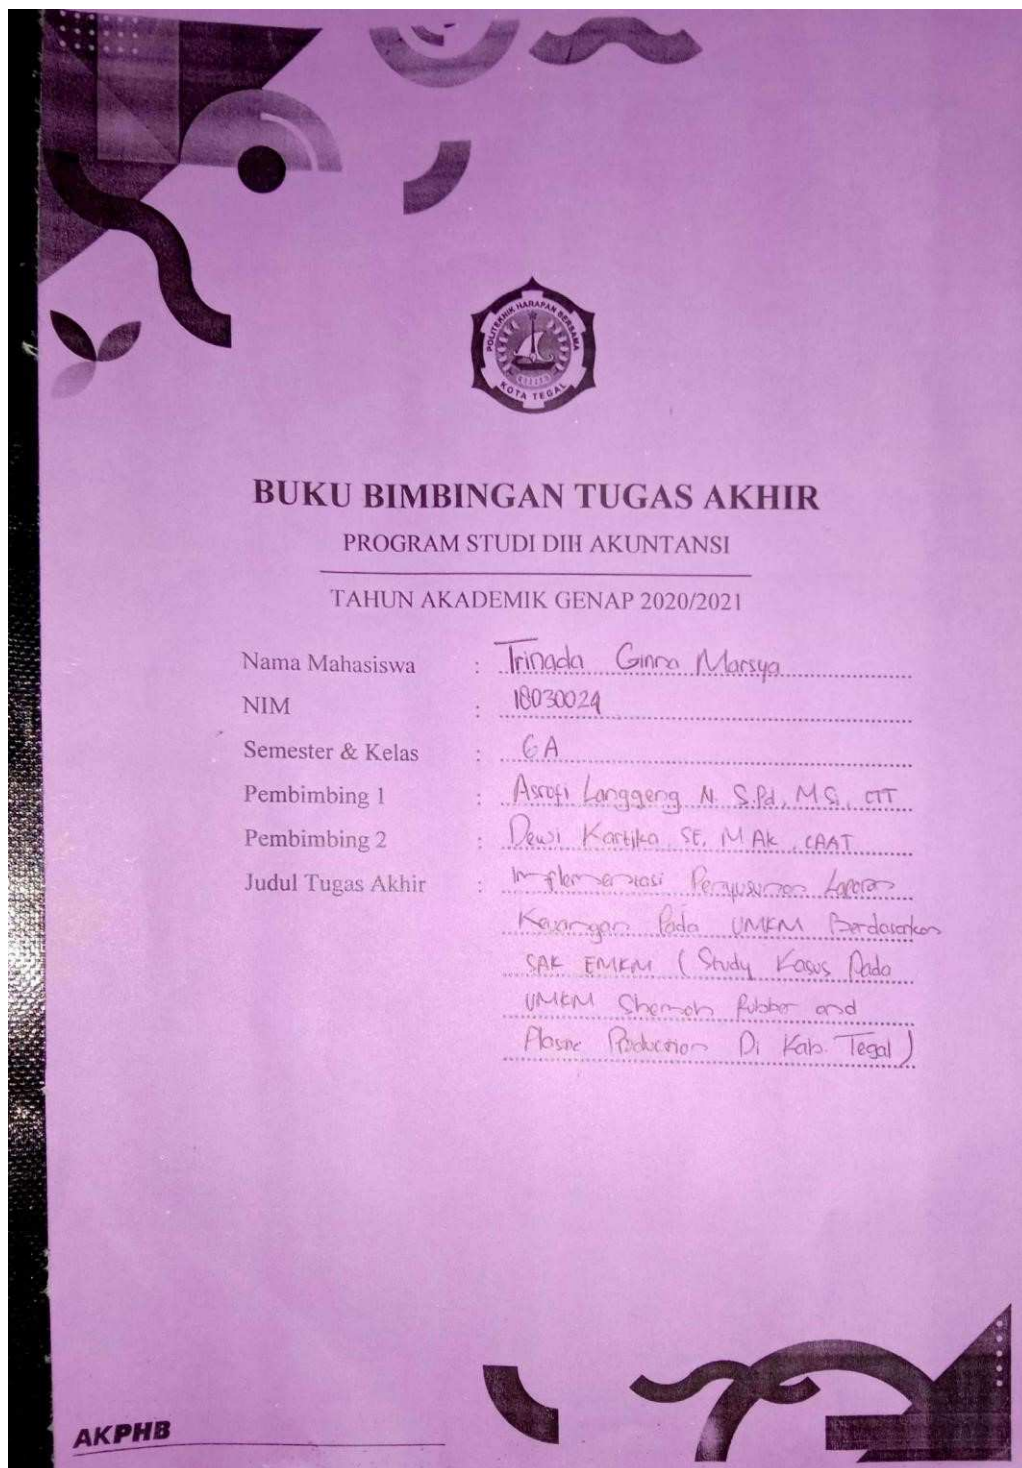 POLITEKNIK HARAPAN BERSAMA
KOTA TEGAL
BUKU BIMBINGAN TUGAS AKHIR
PROGRAM STUDI DIII AKUNTANSI
TAHUN AKADEMIK GENAP 2020/2021
Nama Mahasiswa : Trinada Ginna Marsya
NIM : 18030024
Semester & Kelas : 6A
Pembimbing 1 : Asrofi Langgeng N. S.Pd, M.Si, CTT
Pembimbing 2 : Dewi Kartika, SE, M Ak, CAAT
Judul Tugas Akhir : Implementasi Penyusunan Laporan
Keuangan Pada UMKM Berdasarkan
SAK EMKM (Study Kasus Pada
UMKM Rubber and
Production Di Kab. Tegal)
AKPHB